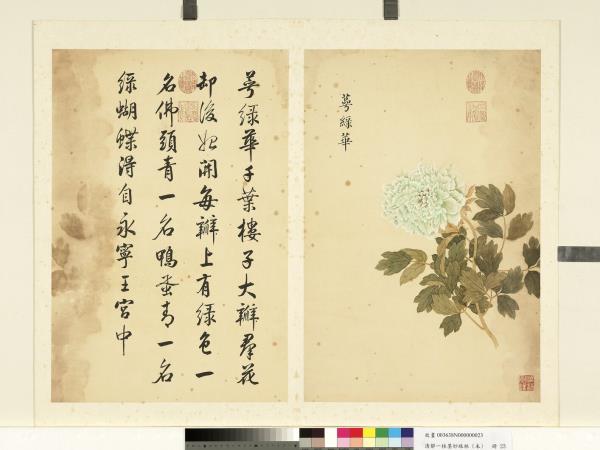 萼綠華
萼綠華千葉樓子大瓣羣花
却後始開每瓣上有綠色一
名佛頭青一名鴨蛋青一名
綠蝴蝶得自永寧王宮中
故畫 003638N000000023
清鄒一桂墨妙珠林（未） 冊 23